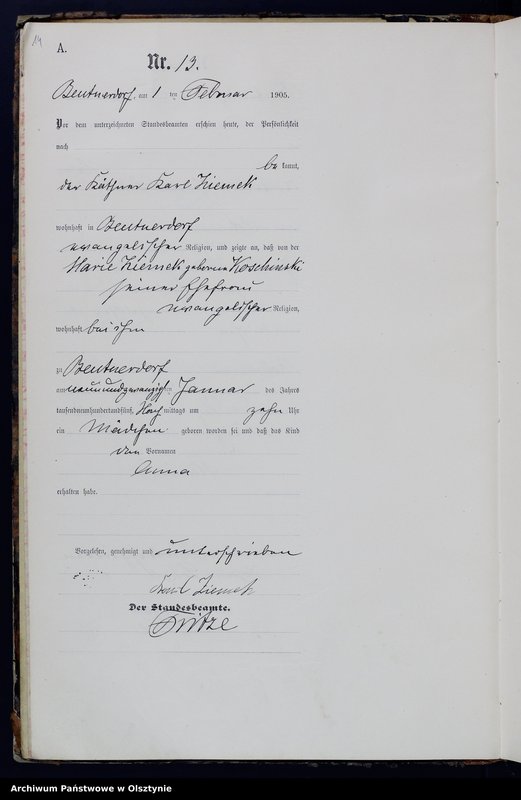 14
A.
Nr. 13.
Beutnerdorf, am 1 ten Februar 1905.
Vor dem unterzeichneten Standesbeamten erschien heute, der Persönlichkeit
nach
be kannt,
der Käthner Karl Ziemek
wohnhaft in Beutnerdorf
evangelischer Religion, und zeigte an, daß von der
Marie Ziemek geborene Koschinski
seiner Ehefrau
evangelischer Religion,
wohnhaft bei ihm
zu Beutnerdorf
am neunundzwanzigsten Januar des Jahres
tausendneunhundertundfünf, Nach mittags um zehn Uhr
ein Mädchen geboren worden sei und daß das Kind
den Vornamen
Anna
erhalten habe.
Vorgelesen, genehmigt und unterschrieben
Karl Ziemek
Der Standesbeamte.
Archiwum Państwowe w Olsztynie